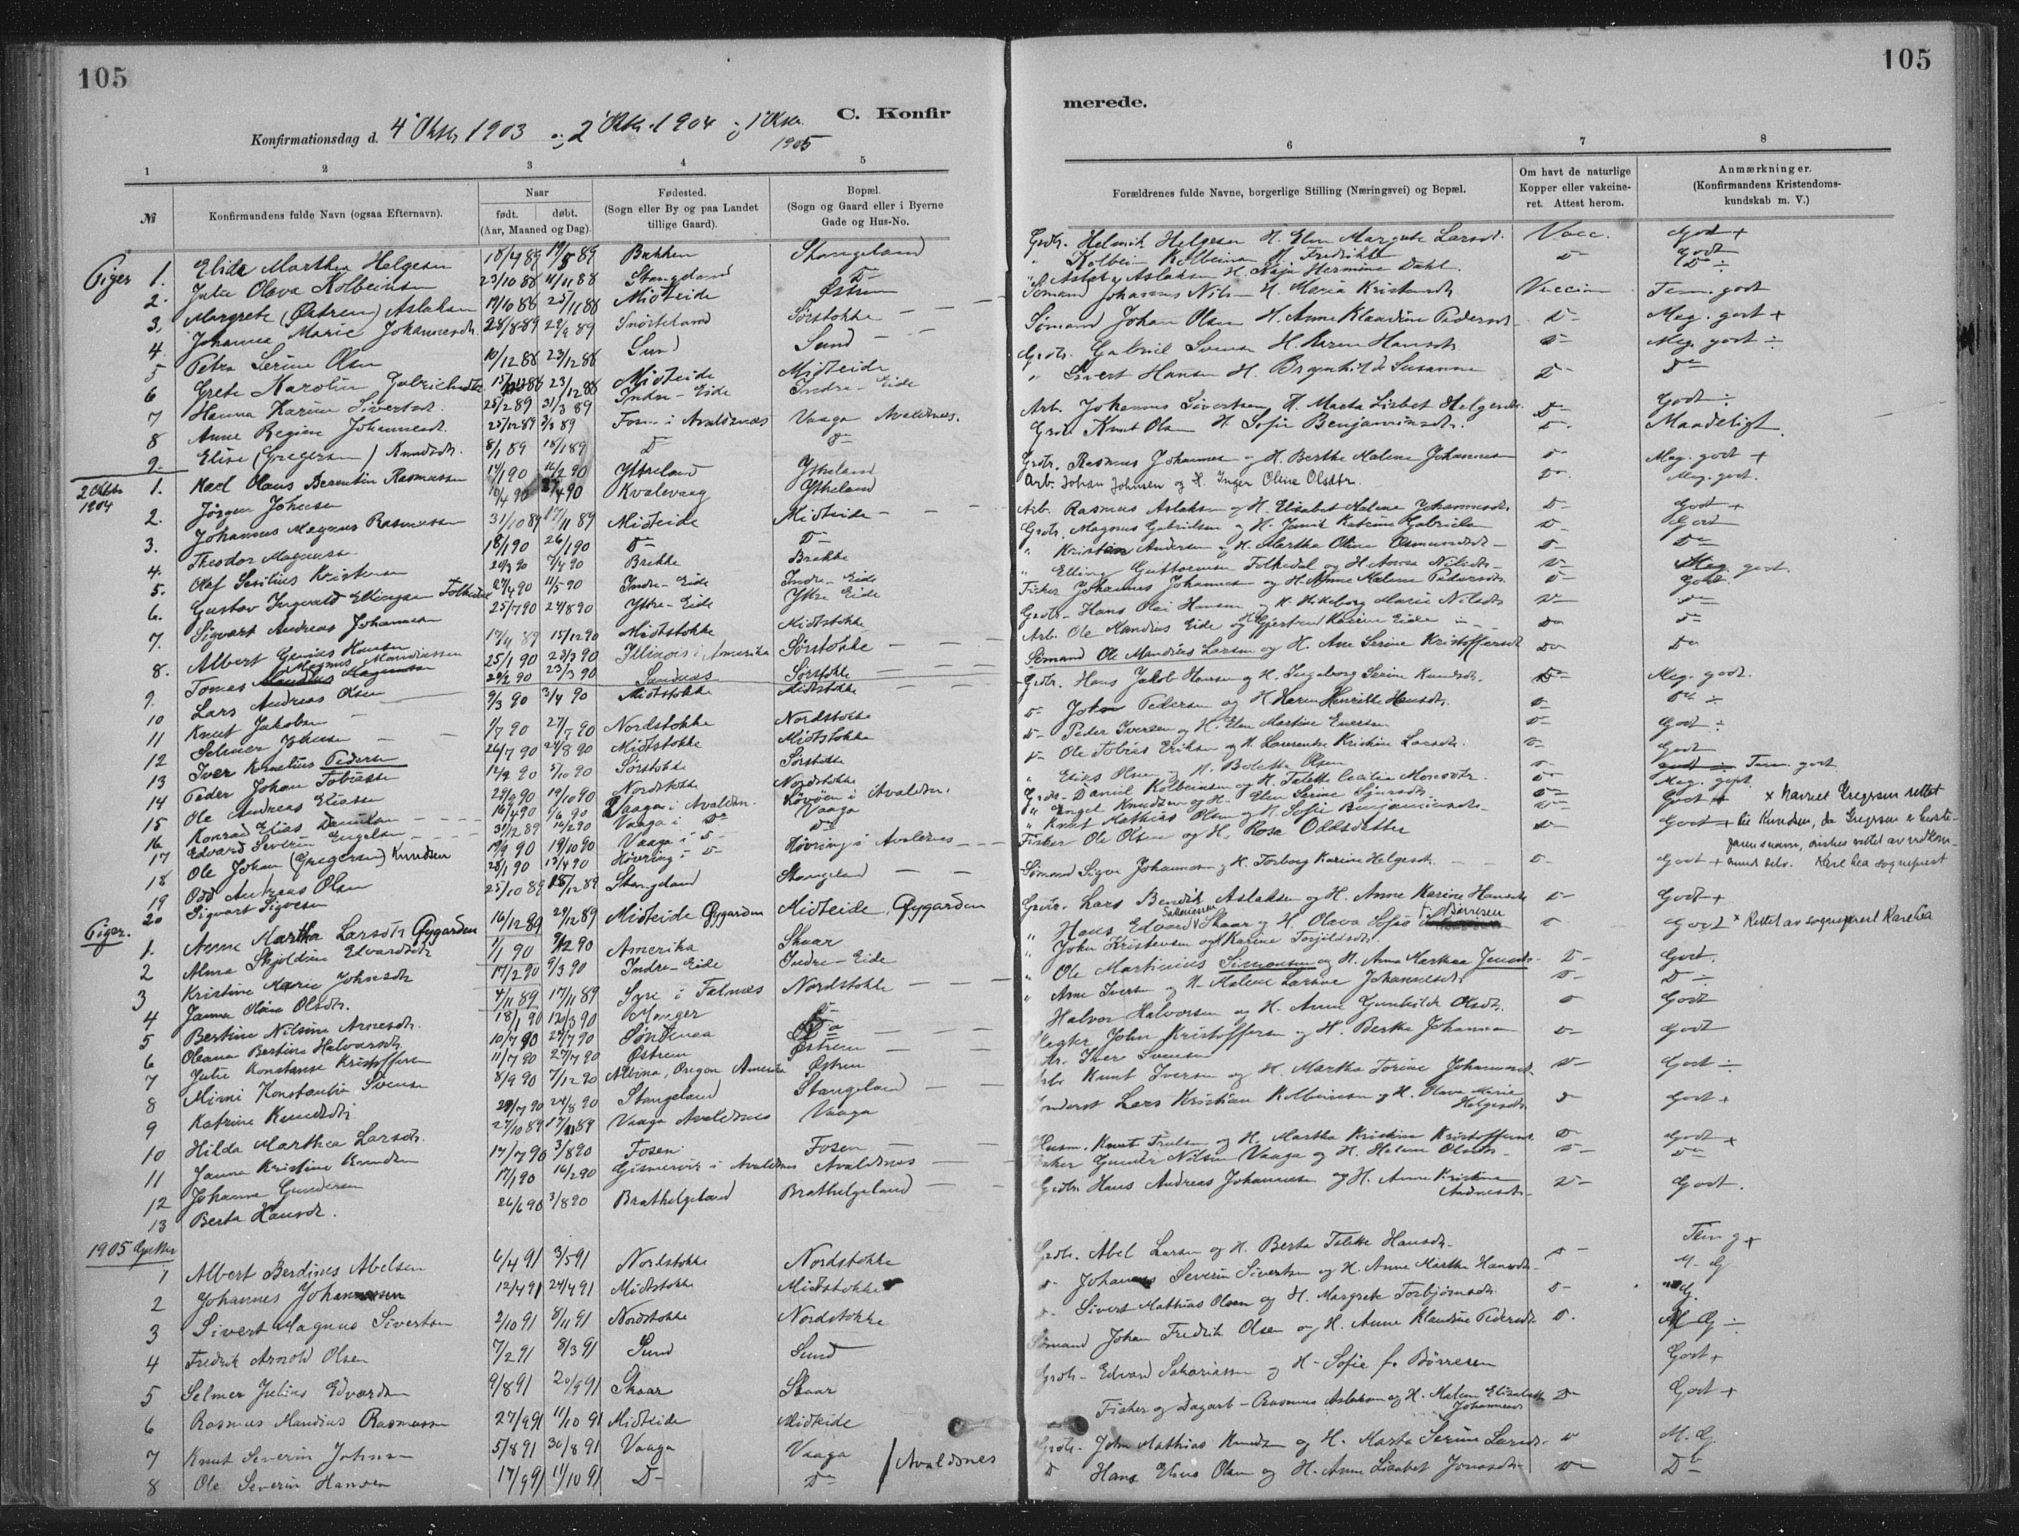 105
105
C. Konfir
merede.
Konfirmationsdag d. 4 Oktbr 1903 og 2 Oktbr. 1904 og 1 Oktbr. 1905
1 2 3 4 5 6 7 8
№
Konfirmandens fulde Navn (ogsaa Efternavn).
Naar
født. døbt.
(Aar, Maaned og Dag).
Fødested.
(Sogn eller By og paa Landet
tillige Gaard).
Bopæl.
(Sogn og Gaard eller i Byerne
Gade og Hus-No.
Forældrenes fulde Navne, borgerlige Stilling (Næringsvei) og Bopæl.
Om havt de naturlige
Kopper eller vakcine-
ret. Attest herom.
Anmærkninger.
(Konfirmandens Kristendoms-
kundskab m. V.)
Piger 1. Elide Marthea Helgesen 18/4 89 19/5 89 Bakken Stangeland Grdbr. Helmik Helgesen H. Elen Margrete Larsdt. Vacc. Godt +
2. Julie Olava Kolbeinsen 23/10 88 11/11 88 Stangeland D- " Kolbein Kolbeinsen H. Fredrikke D- Godt
3. Margrete (Østrem) Aslaksen 19/10 88 25/11 88 Midteide Østrem Aslak Aslaksen H. Hermine Dahl. D- ÷
4. Johanna Marie Johannesdt. 28/8 89 29/9 89 Snørteland Sørstokke Sømand Johannes Nils- H. Maria Kristensdt. Vaccin Tem. godt
5 Petra Serine Olsen 10/12 88 23/12 88 Sund Sund Sømand Johan Olsen H. Anne Klaudine Pedersdt. D- Meg. godt +
6 Grete Karoline Gabrielsdtr 23/12 88 Midteide Midteide Grdbr. Gabriel Svensen H. Karen Hansdt. D- Meg. godt ÷
7 Hanna Karine Sivertsdt. 25/2 89 31/3 89 Indre-Eide Indre-Eide " Sivert Hansen H. Brynhilde Susanne D- D-
8 Anne Regine Johannesdt. 25/12 89 3/3 89 Fosen i Avaldsnæs Vaaga Avaldsnæs. Arb. Johannes Sivertsen, H. Marta Lisbet Helgesdt. D- Godt ÷
9. Elise (Gregersen) Knudsdt. 8/1 89 18/1 89 D D- Grdb Knut Olsen H. Sofie Benjaminsdt. D- Maadeligt
2 Oktbr 1904 1. Karl Olaus Berentin Rasmussen 14/1 90 16/2 90 Ytreland Ytreland Grdbr. Rasmus Johannesen og H. Berthe Malene Johannesen D- Meg. godt +
2. Jørgen Johnsen 10/4 90 27/4 90 Kvalevaag Ytreland Arb. Johan Johnsen og H. Inger Oline Olsdtr. D- Meg. godt.
3. Johannes Magnus Rasmussen 31/10 89 17/11 89 Midteide Midteide Arb. Rasmus Aslaksen og H. Elisabet Malene Johannesdt. D- Godt +
4. Theodor Magnusen 18/1 90 26/1 90 D- D- Grdbr. Magnus Gabrielsen og H. Katrine Gabrielsen D- Godt
5. Olaf Serilius Kristensen 20/3 90 7/4 90 Brekke Brekke " Kristen Andersen og H. Martha Oline Osmundsdt D- D-
6. Gustav Ingvald Ellingsen Folkedal 27/4 90 11/5 90 Indre-Eide Indre-Eide " Elling Guttormsen Folkedal og H. Anna Nilsdt. D- Meg. godt.
7. Sigvart Andreas Johannesen 25/7 90 24/8 90 Ytre-Eide Ytre Eide Fisker Johannes Johannesen og H. Anne Malene Pedersdt. D- Godt.
8. Albert Hansen 17/4 89 15/12 90 Midtstokke Midtstokke Grdbr. Hans Olai Hansen og H. Marie Nilsdt D- D-
9. Tomas Magnus Mandiussen 25/1 90 23/3 90 Illinois i Amerika Sørstokke Arb. Ole Mandius Eide og H. Gjertrud Karine Eide D- D-
10 Lars Andreas Olsen 23/3 90 Sandnæs Sørstokke Sømand Ole Mandius Larsen og H. Ane Serine Kristoffersdt D- D-
11 Knut Jakobsen 9/3 90 3/4 90 Midtstokke Midtstokke Grdbr. Hans Jakob Hansen og H. Ingeborg Serine Knutsdt. D- Meg. godt.
12 Selmer Johnsen 1/7 90 27/7 90 Nordstokke Nordstokke D- John Pedersen og H. Karen Henrikke Hansdt. D- D- ÷
13 Iver Kornelius Pedersen 26/7 90 24/8 90 Midtstokke Midtstokke D- Peder Iversen og H. Elen Martine Enersen D- Godt ÷
14 Peder Johan Tobiassen 12/9 90 5/10 90 Sørstokke Sørstokke D- Ole Tobias Eriksen og H. Laurentse Kristine Larsdt. D- Godt
15 Ole Andreas Eliassen 29/9 90 19/10 90 Nordstokke Nordstokke " Elias Olsen og H. Bolette Olsen D- Tem. godt
16 Konrad Elias Danielsen 16/4 90 1/6 90 Vaaga i Avaldsn. i Avaldsn. Grdb- Daniel Kolbeinsen og H. Talette Cecilia Monsdtr. D- Meg. godt
17 Edvard Severin Engelsen 31/12 89 16/2 90 Vaaga i D- Vaaga Engel Knudsen og H. Elen Serine Sjursdt. D- Godt + x Navnet Gregersen rettet
18 Ole Johan (Gregersen) Knudsen 19/9 90 19/10 90 Vaaga i D- D- " Knut Mathias Olsen og H. Sofie Benjaminsdt. D- Godt + til Knudsen, da Gregersen e beste-
19 Odd Andreas Olsen 28/1 90 13/4 90 Høvring i D- Høvring i Avaldsnes Fisker Ole Olsen og H. Rosa Oddsdatter D- farens navn, ønskes rettet av vedkom-
20 Sigvart Sigvesen 25/10 89 18/12 89 Stangeland Stangeland Sømand Sigve Johannesen og H. Torborg Karine Helgesdt. D- Godt + mend selv. Karl Lea sogneprest
Piger. 1. Anne Martha Larsdtr Øygarden 16/12 89 29/12 89 Midteide Øygarden Midteide, Øygarden Grdbr. Lars Bendik Aslaksen og H. Anne Karine Hansdt D- Godt +
2 Alma Skjoldine Edvardsdt 1/1 90 9/2 90 Amerika Skaar " Hans Edvard Sakariassen Skaar og H. Olava Sofie f. Børresen D- Godt x Rettet av sogneprest Karl Lea
3 Kristine Marie Johnsdt 17/2 90 9/3 90 Indre-Eide Indre-Eide " John Kristensen og H Karine Torjildsdt.
4 Janna Oline Olsdtr. 4/11 89 17/11 89 Syre i Falnæs Nordstokke " Ole Martinius Simonsen og H. Anna Marthea Jensdt. D- Godt.
5 Bertine Nilsine Arnesdt. 18/1 90 20/3 90 D- " Arne Iversen og H. Malene Larsine Johannesdt. D- D ÷
6 Oleana Bertine Halvorsdt. 10/7 90 27/7 90 D- Halvor Halvorsen og H. Anne Gunhilde Olsdt. D Godt
7 Julie Konstanse Kristoffersen 11/7 90 27/7 90 Østrem Østrem John Kristoffersen og H. Berthe Johannesen D- Godt
8 Mimi Konstantie Svensen 8/9 90 7/12 90 Albina, Oregon Amerika Østrem Iver Svensen
9 Katrine Knutsdt. 29/7 90 24/8 90 Stangeland Stangeland Arb. Knut Iversen og H. Martha Torine Johannesdt D- Godt ÷
10 Hilda Marthea Larsdt. 27/10 89 17/11 89 Vaaga Avaldsnes Vaaga Inderst Lars Kristian Kolbeinsen og H. Olava Marie Helgesdt. D Godt +
11 Janna Kristine Knudsen 17/7 90 3/8 90 Fosen Fosen Husm. Knut Trulsen og H. Martha Kristine Kristoffersdt. D- Godt +
12 Johanna Gundersen 17/1 90 16/2 90 Gismervik i Avaldsnes Avaldsnes Fisker Gunder Nilsen Vaaga og H. Helene Olsdt. D- D-
13 Berta Hansdt. 26/6 90 3/8 90 Brathelgeland Brathelgeland Grdbr. Hans Andreas Johannesen og H. Anne Kristine Andresdt. D- Godt.
1905 Gutter
1 Albert Berdines Abelsen 6/4 91 3/5 91 Nordstokke Nordstokke Grdbr. Abel Larsen og H. Berta Talette Hansdt. D- Tem g +
2 Johannes Johannesen 12/4 91 24/4 91 Midtstokke Midtstokke D- Johannes Severin Sivertsen og H. Anne Marthe Hansdt. M. G
3 Sivert Magnus Sivertsen 2/10 91 8/11 91 Nordstokke Nordstokke D- Sivert Mathias Olsen og H. Margrete Torbjørnsdt. D- Mg.
4 Fredrik Arnold Olsen 7/2 91 8/3 91 Sund Sund Sømand Johan Fredrik Olsen og H. Anne Klaudine Pedersdt D. M G ÷
5 Selmer Julius Edvardsen 9/8 91 20/9 91 Skaar Skaar Grdbr- Edvard Sakariassen og H- Sofie f. Børresen Godt +
6 Rasmus Mandius Rasmussen 27/9 91 11/10 91 Midteide Midteide Fisker og Dagarb- Rasmus Aslaksen og H. Malene Elisabeth Johannesdt D- Godt +
7 Knut Severin Johnsen 5/8 91 30/8 91 Vaaga Vaaga Avaldsnes Grdbr. John Mathias Knudsen og H. Marta Serine Larsdt. D M. G.
8 Ole Severin Hansen 17/9 91 11/10 91 D- D- D Hans Elias Olsen og H. Anne Lisabet Jonasdt. D- D-